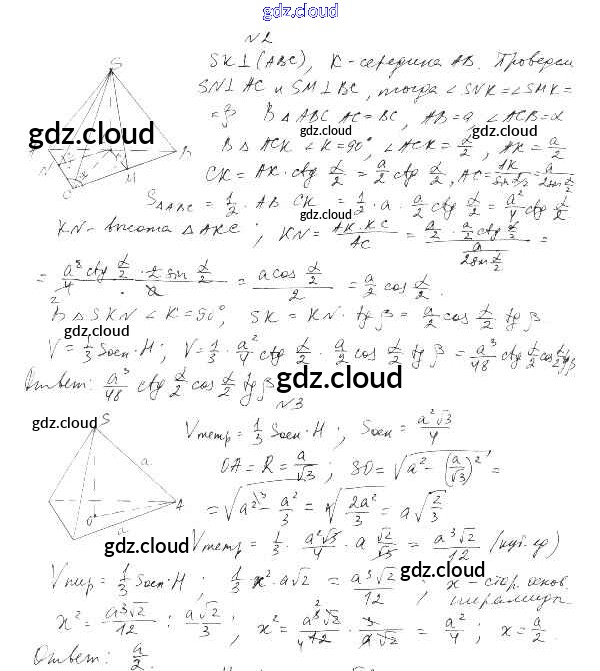 gdz.cloud
N2
SK⊥(ABC), K - середина AB. Проведем
SN⊥AC и SM⊥BC, тогда ∠SNK=∠SMK=
=β В △ABC AC=BC, AB=a, ∠ACB=α
gdz.cloud
gdz.cloud
В △ACK ∠K=90°, ∠ACK=α/2, AK=a/2
CK = AK·ctg α/2 = a/2 ctg α/2, AC=AK/sin α/2=a/2sin α/2
S△ABC = 1/2·AB·CK = 1/2·a·a/2 ctg α/2 = a²/4 ctg α/2
gdz.cloud
KN - высота △AKC; KN = AK·KC/AC = (a/2 · a/2 ctg α/2)/(a/2sin α/2) =
= a² ctg α/2 · 2 sin α/2 / 4 · a = a cos α/2 / 2 = a/2 cos α/2.
В △SKN ∠K=90°, SK = KN·tg β = a/2 cos α/2 tg β
gdz.cloud
gdz.cloud
V = 1/3 Sосн·H; V = 1/3 · a²/4 ctg α/2 · a/2 cos α/2 tg β = a³/48 ctg α/2 cos α/2 tg β
Ответ: a³/48 ctg α/2 cos α/2 tg β
gdz.cloud
N3
gdz.cloud
Vтетр = 1/3 Sосн·H; Sосн = a²√3/4
OA = R = a/√3; SO = √(a² - (a/√3)²) =
= √(a² - a²/3) = √(2a²/3) = a√(2/3)
gdz.cloud
Vтетр = 1/3 · a²√3/4 · a √2/√3 = a³√2/12 (куб.ед)
gdz.cloud
Vпир = 1/3 Sосн·H; 1/3·x²·a√2 = a³√2/12; x - стор. основ.
пирамиды.
x² = a³√2/12 : a√2/3; x² = a³√2/12 · 3/a√2 = a²/4; x = a/2.
Ответ: a/2.
gdz.cloud